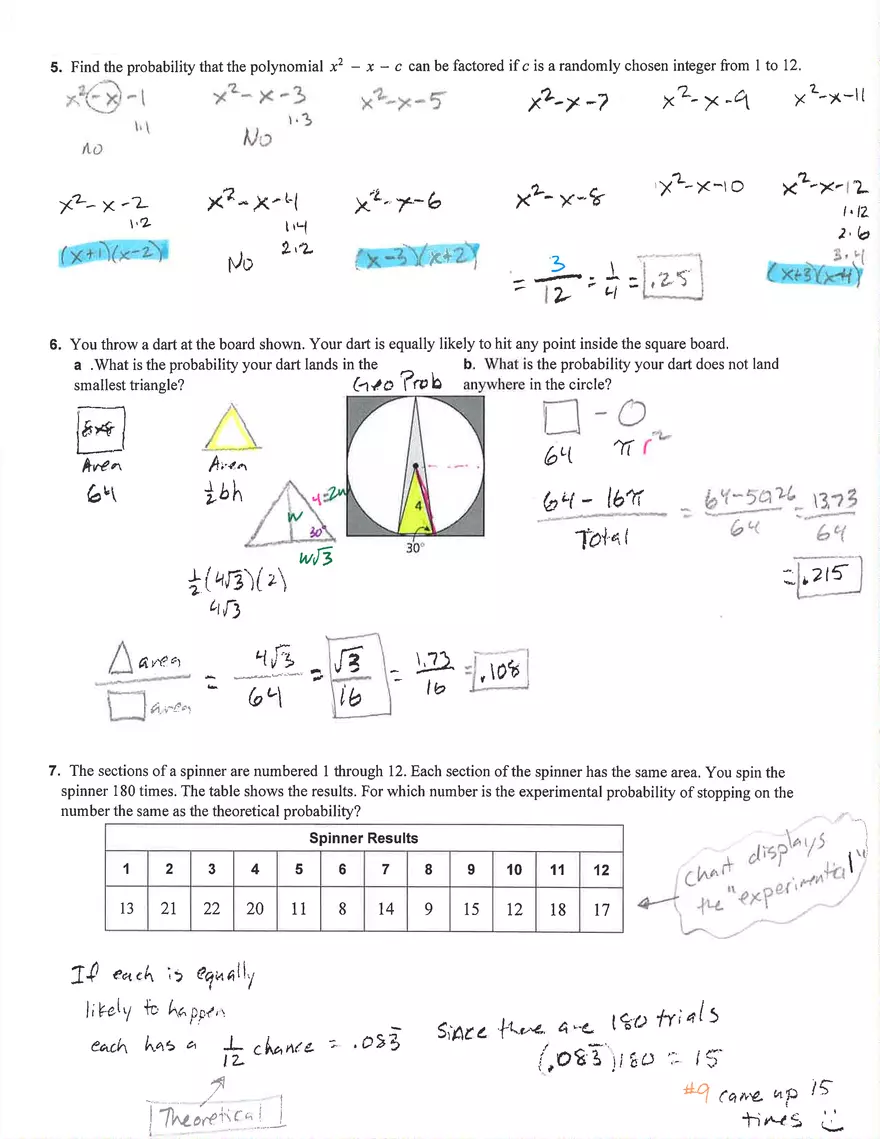 5. Find the probability that the polynomial x² − x − c can be factored if c is a randomly chosen integer from 1 to 12.
x²-x-1 x²-x-3 x²-x-5 x²-x-7 x²-x-9 x²-x-11
1·1 1·3
no No
x²-x-2 x²-x-4 x²-x-6 x²-x-8 x²-x-10 x²-x-12
1·2 1·4 1·12
2·2 2·6
No 3·4
(x+1)(x-2) (x-3)(x+2) (x+3)(x-4)
= 3/12 = 1/4 = .25
6. You throw a dart at the board shown. Your dart is equally likely to hit any point inside the square board.
a .What is the probability your dart lands in the
smallest triangle?
b. What is the probability your dart does not land
anywhere in the circle?
Geo Prob
8x8
Area Area
64 ½bh
4=2w
w
30°
w√3
4
30°
½(4√3)(2)
4√3
□ - ○
64 πr²
64 - 16π / Total = 64-50.26 / 64 = 13.73 / 64
= .215
△ area / □ area = 4√3 / 64 = √3 / 16 = 1.73 / 16 = .108
7. The sections of a spinner are numbered 1 through 12. Each section of the spinner has the same area. You spin the
spinner 180 times. The table shows the results. For which number is the experimental probability of stopping on the
number the same as the theoretical probability?
Spinner Results
1 2 3 4 5 6 7 8 9 10 11 12
13 21 22 20 11 8 14 9 15 12 18 17
chart displays
the "experimental"
If each is equally
likely to happen
each has a 1/12 chance = .083̅
Theoretical
Since there are 180 trials
(.083̅)180 = 15
#9 came up 15
times